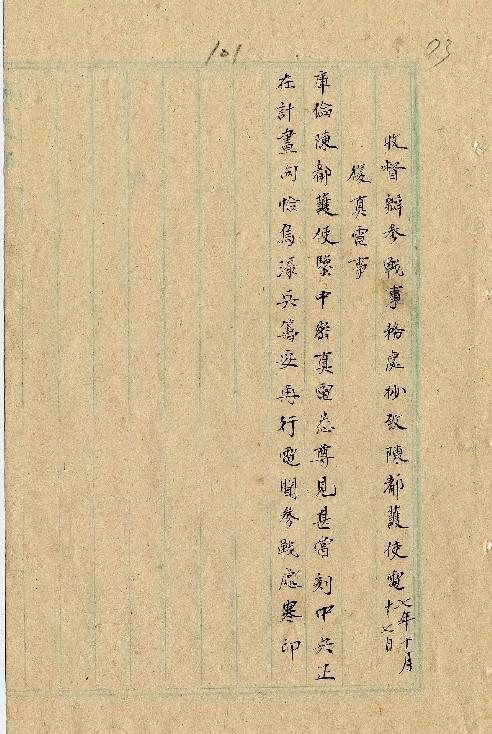 101
03
收督辦參戰事務處抄致陳都護使電七年十月
十七日
復真電事
庫倫陳都護使鑒中密真電悉尊見甚當刻中央正
在計畫向恰烏添兵籌妥再行電聞參戰處寒印